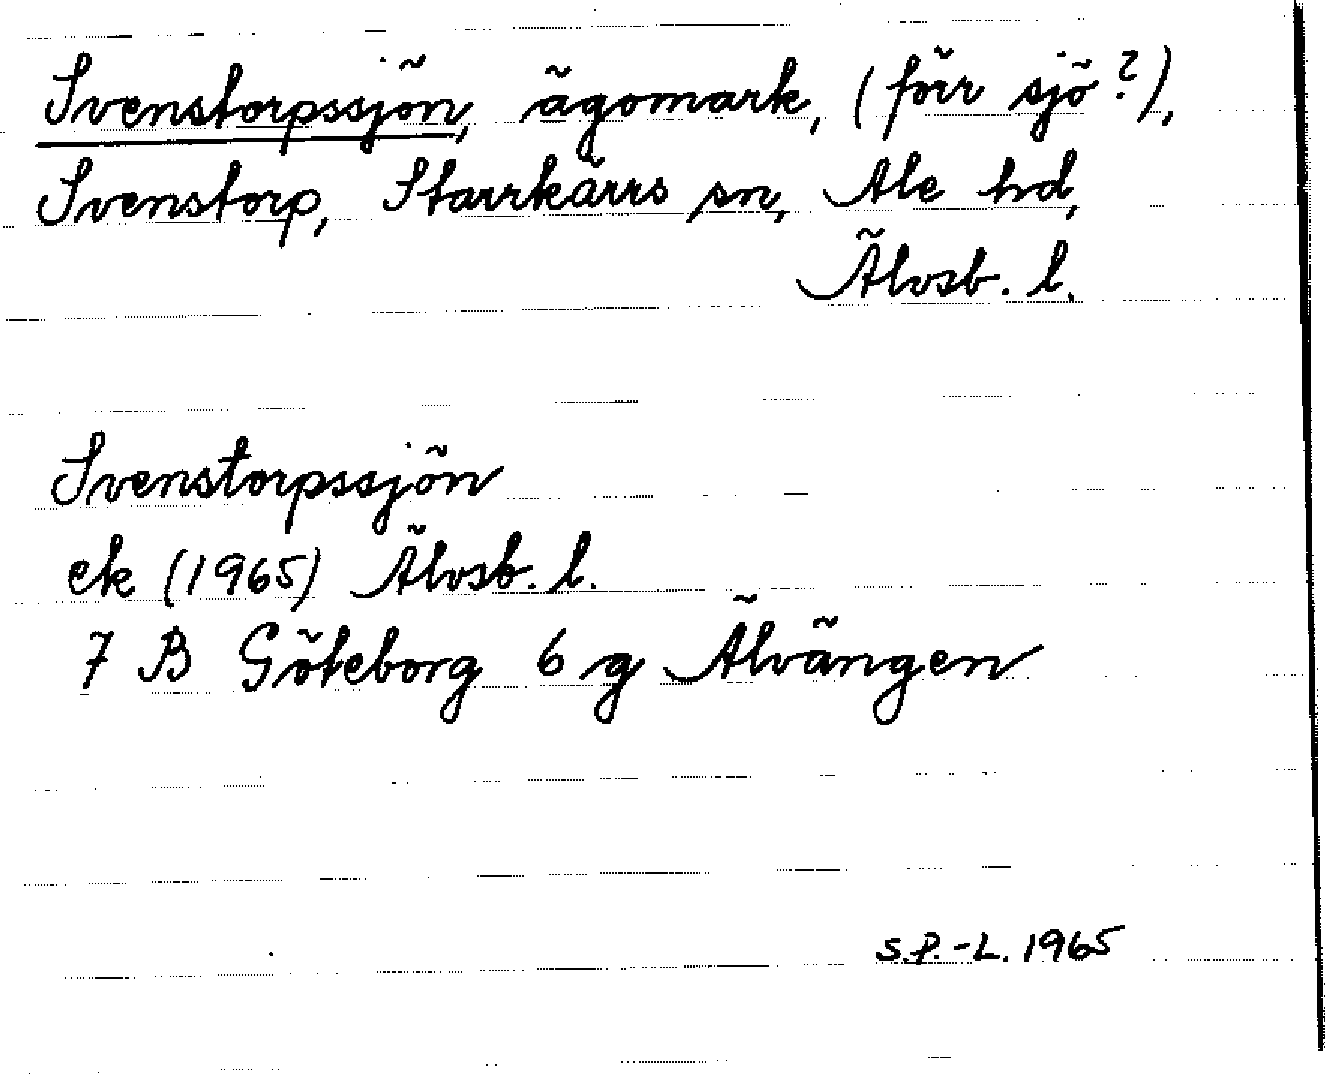 Svenstorpssjön, ägomark, (förr sjö?),
Svenstorp, Starrkärrs sn, Ale hd,
Älvsb. l.
Svenstorpssjön
ek (1965) Älvsb. l.
7 B Göteborg 6 g Älvängen
S.P.-L. 1965